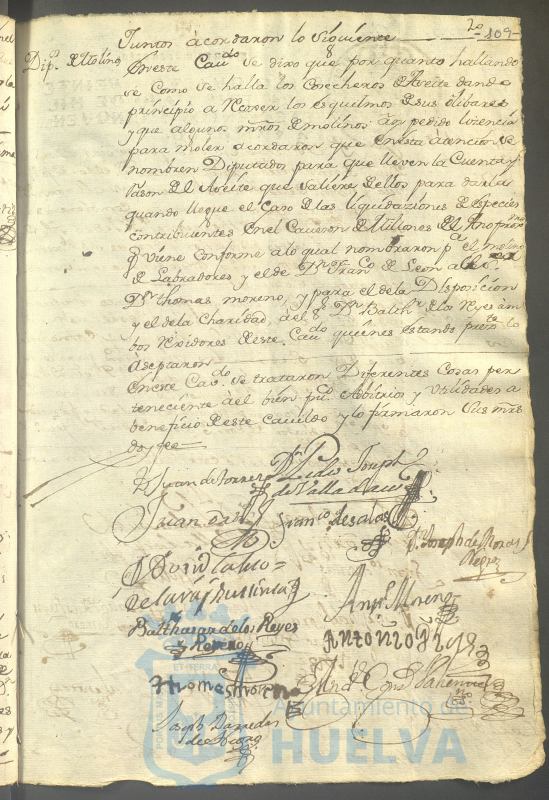 109
Juntos acordaron lo Siguiente
Dip.s de Molino
En este Cau.do se dixo que por quanto hallando
se como se halla los Cosecheros de Aceite dando
principio a Recoxer los esquelmos de sus olibares
y que algunos molinos an pedido lizencia
para moler acordaron que en esta atencion se
nombren Diputados para que lleven la Cuenta y
rason del Aceite que Saliere dellos para darla
quando llegue el Caso de las liquidaziones de especies
contribuientes en el Caveson de Millones del Año
q viene conforme a lo qual nombraron p.a el molino
de Labradores y el de D.n Fran.co de Leon a el S.r
D.n Thomas moreno, y para el de la Disposicion
y el de la Charidad, a el S.r D.n Balth.r de los Reyes am
bos Rexidores de este Cau.do quienes estando pres.tes lo
aseptaron
En este Cau.do se trataron Diferentes Cosas per
teneciente al bien pu.co Arbitrios y Utilidades a
beneficio de este Cauildo y lo firmaron Sus mrds
doy fee
D.n Juan de Torres
D.n Pedro Joseph
de Valladares
Juan
Fran.co de Salas
D.n Joseph de Rosas
Ant.o Moreno
Balthasar de los Reyes
Antonio
Thomas moreno
Joseph Paredes
ET TERRÆ
Ayuntamiento de
HUELVA